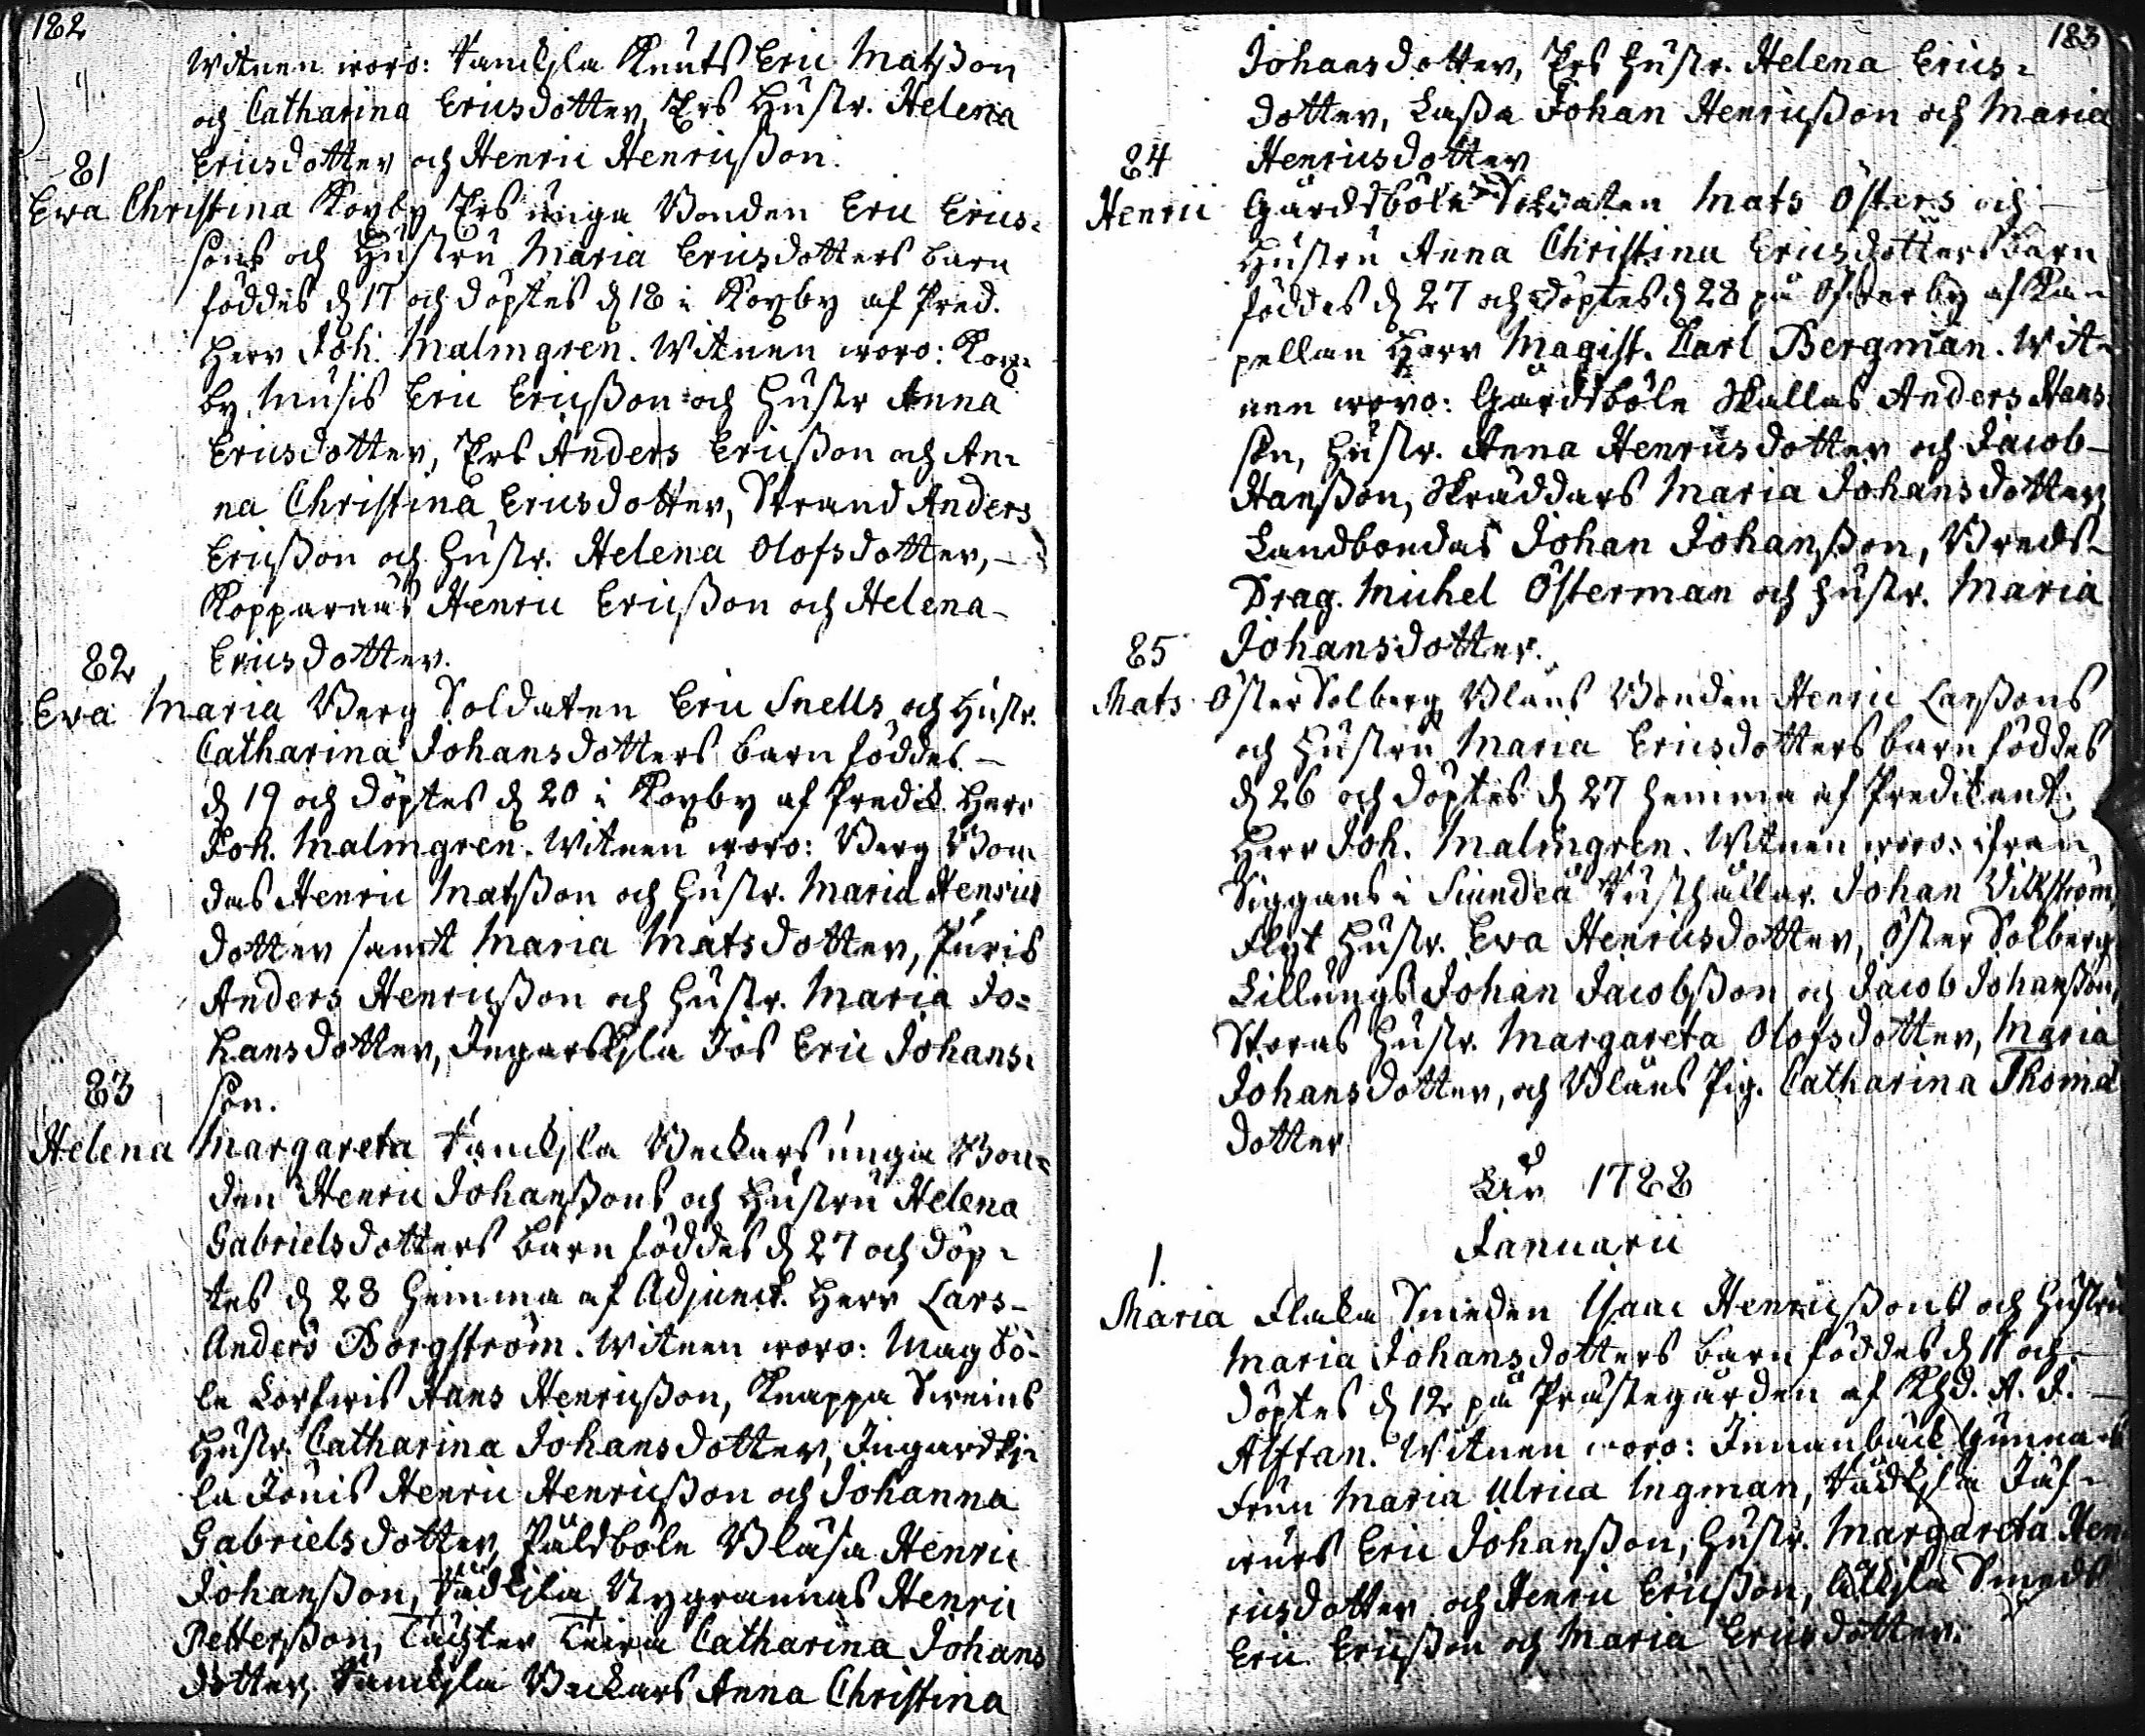 182
Witnen woro: Vamkyla Knuts Eric Matsson
och Catharina Ericsdotter, Ers Hustr. Helena
Ericsdotter och Henric Henricsson.
81
Eva Christina Koxby Ers unga Bonden Eric Erics-
sons och Hustru Maria Ericsdotters barn
föddes d 17 och döptes d 18 i Koxby af Pred.
Herr Joh. Malmgren. Witnen woro: Kox-
by Musis Eric Ericsson och Hustr Anna
Ericsdotter, Ers Anders Ericsson och An-
na Christina Ericsdotter, Strand Anders
Ericsson och Hustr. Helena Olofsdotter, -
Kopparnäs Henric Ericsson och Helena -
82
Ericsdotter.
Eva Maria Berg Soldaten Eric Snells och Hustr.
Catharina Johansdotters barn föddes -
d 19 och döptes d 20 i Koxby af Predik. Herr
Joh. Malmgren. Witnen woro: Berg Bon-
das Henric Matsson och Hustr. Maria Henrics
dotter samt Maria Matsdotter, Puris
Anders Henricsson och Hustr. Maria Jo-
hansdotter, Ingarskyla Jos Eric Johans-
83
son.
Helena Margareta Vamkyla Veckars unga Bon-
den Henric Johanssons och Hustru Helena
Gabrielsdotters barn föddes d 27 och döp-
tes d 28 hemma af Adjunct. Herr Lars -
Anders Borgström. Witnen woro: Magbö-
le Hans Henricsson, Knappa Sweins
Hustr. Catharina Johansdotter, Ingardky-
la Jönis Henric Henricsson och Johanna
Gabrielsdotter, Påldböle Blåsa Henric
Johansson, Vädkyla Nygrannas Henric
Pettersson, Täckter Catharina Johans
dotter, Vamkyla Veckars Anna Christina
183
Johansdotter, Ers Hustr. Helena Erics-
dotter, Lassa Johan Henricsson och Maria
84
Henricsdotter
Henric Gårdsböle Soldaten Mats Östers och -
Hustru Anna Christina Ericsdotters barn
föddes d 27 och döptes d 28 på Österby af Ka-
pellan Herr Magist. Carl Bergman. Wit-
nen woro: Gårdsböle Skallas Anders Hans-
son, Hustr. Anna Henricsdotter och Jacob -
Hansson, Skräddars Maria Johansdotter,
Landbondas Johan Johansson, Breds -
Drag. Michel Österman och Hustr. Maria
85
Johansdotter.
Mats Öster Solberg Bläus Bonden Henric Larssons
och Hustru Maria Ericsdotters barn föddes
d 26 och döptes d 27 hemma af Predikant.
Herr Joh. Malmgren. Witnen woro: ifrån
Siggans i Siundeå Rusthållar. Johan Wikström,
Flyt Hustr. Eva Henricsdotter, Öster Solberg
Lillungs Johan Jacobsson och Jacob Johansson,
Storas Hustr. Margareta Olofsdotter, Maria
Johansdotter, och Bläus Pig. Catharina Thoma
dotter
År 1788
Januarii
1.
Maria Flaka Smeden Isaac Henricssons och Hustru
Maria Johansdotters barn föddes d 11 och -
döptes d 12 på Prästegården af Khd. A. J. -
Alftan. Witnen woro: Innanbäck Gunnars
Frun Maria Ulrica Ingman, Vädkyla Jäf-
wurs Eric Johansson, Hustr. Margareta Hen-
ricsdotter och Henric Ericsson, Smeds
Eric Ericsson och Maria Ericsdotter.